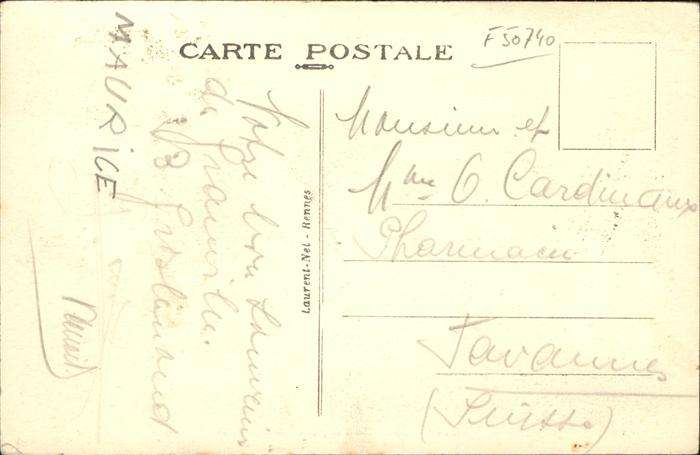 CARTE POSTALE
F 50740
MAURICE
Notre bon souvenir
de Granville.
Laurent-Nel - Rennes
Monsieur et
Mme O. Cardinaux
Pharmacien
Tavannes
(Suisse)